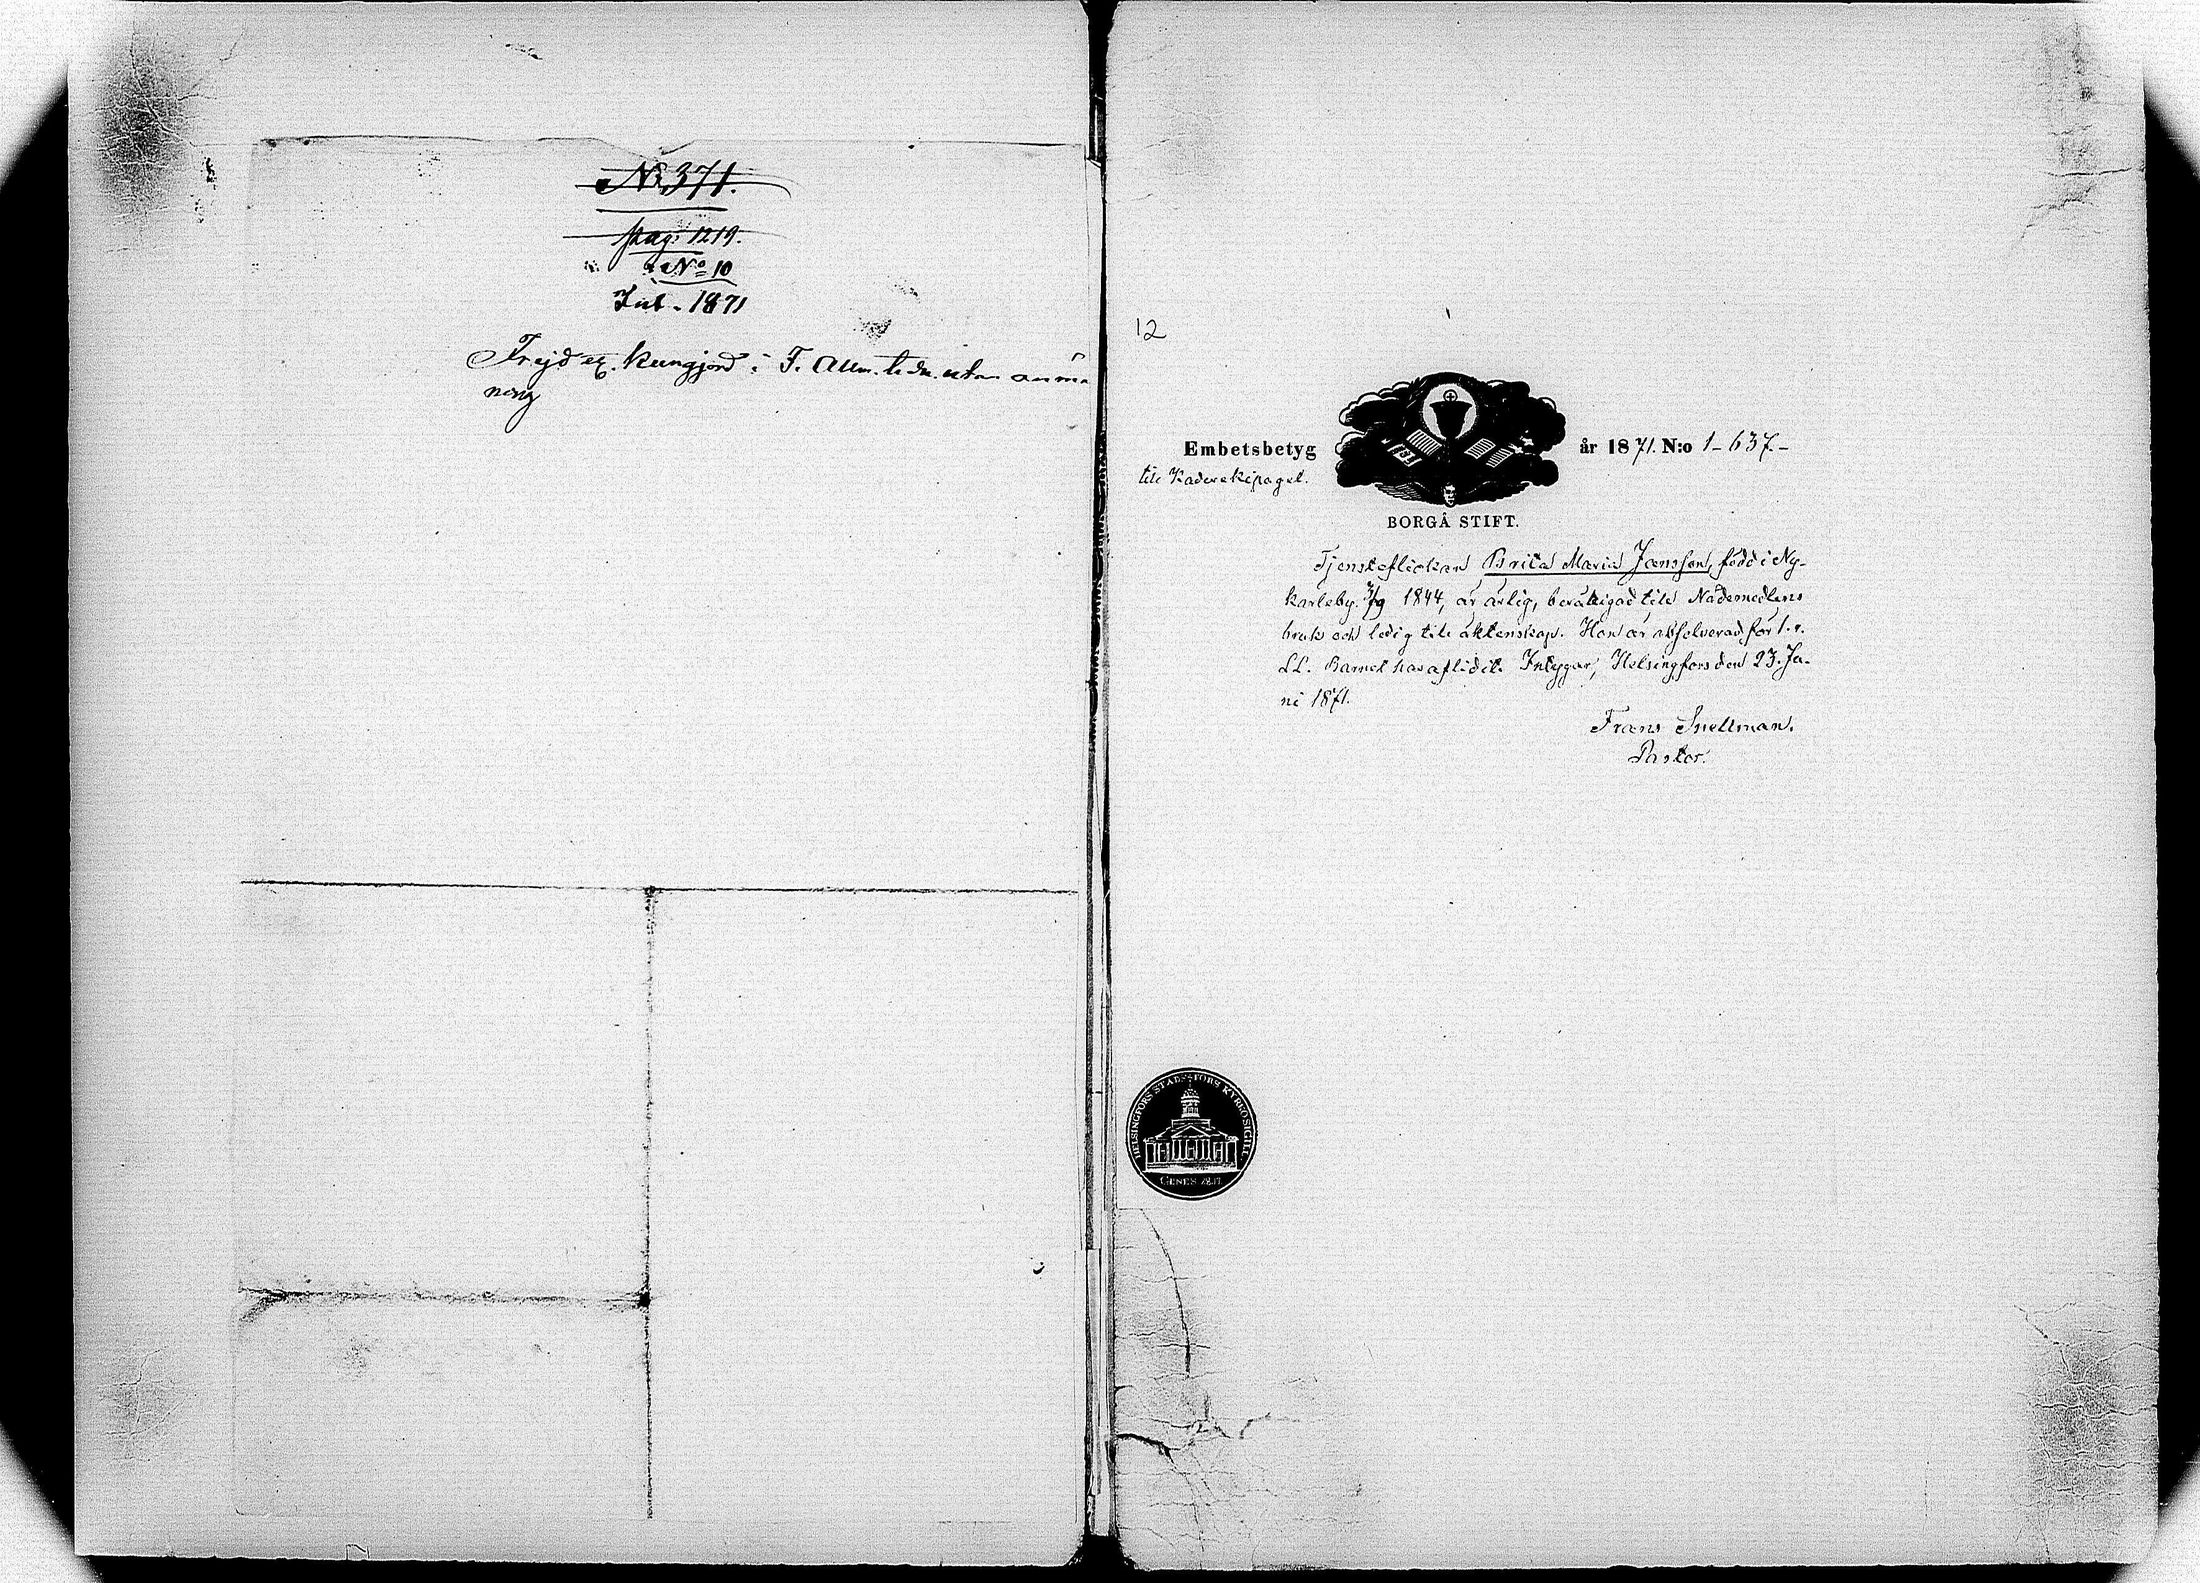 No 371.
pag: 1219.
No 10
Jul. 1871
Frejd ex. kungjord i F. Allm. tidn. utan anmä
ning
12
Embetsbetyg år 1871. N:o 1-637.-
till
BORGÅ STIFT.
Tjensteflickan Brita Maria Jansson, född i Ny-
karleby 3/9 1844, är ärlig, berättigad till Nådemedlens
bruk och ledig till äktenskap. Hon är absolverad för 1. r.
LL. Barnet har aflidit. Intygar, Helsingfors den 23. Ju-
ni 1871.
Frans Snellman.
Pastor.
HELSINGFORS STADSFÖRS KYRKOSIGILL